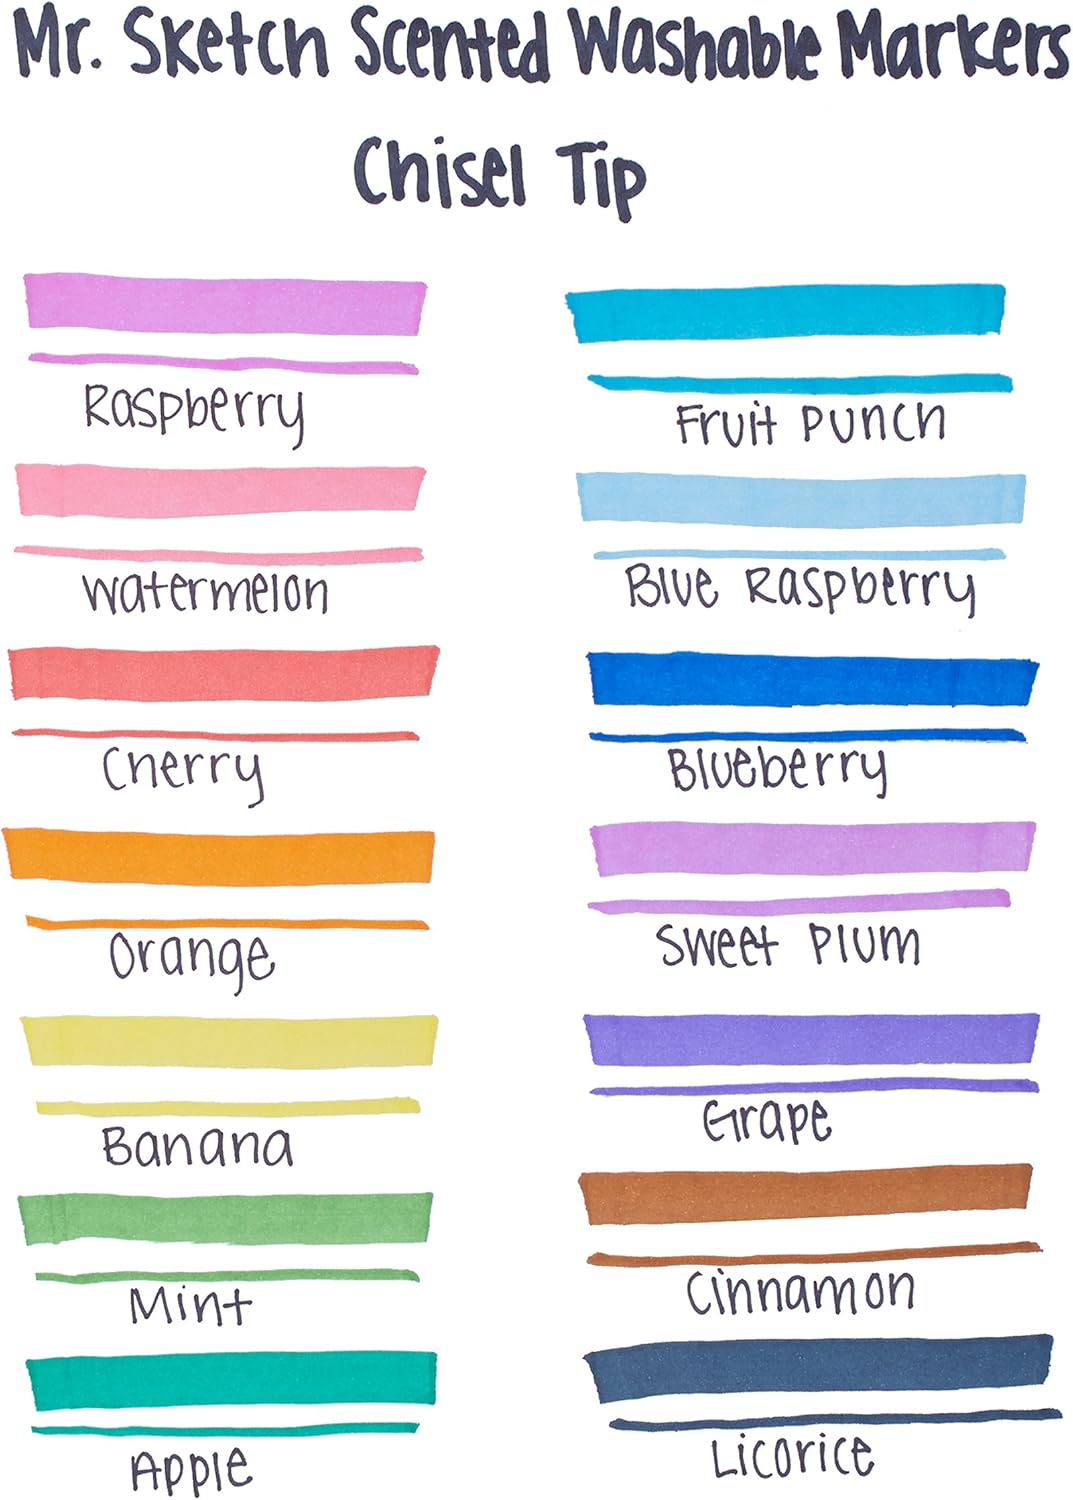 Mr. Sketch Scented Washable Markers
Chisel Tip
Raspberry
Watermelon
Cherry
Orange
Banana
Mint
Apple
Fruit Punch
Blue Raspberry
Blueberry
Sweet Plum
Grape
Cinnamon
Licorice